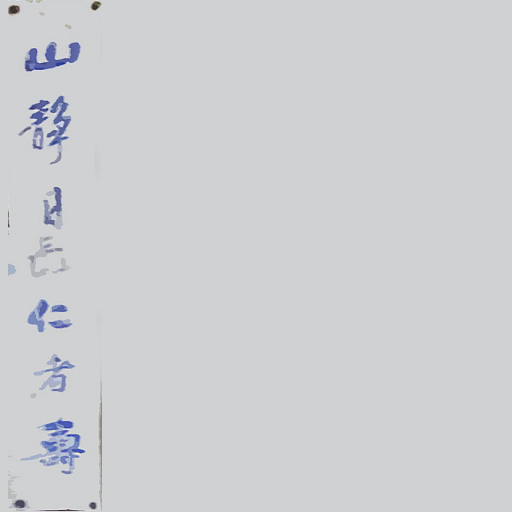 山靜日長仁者壽